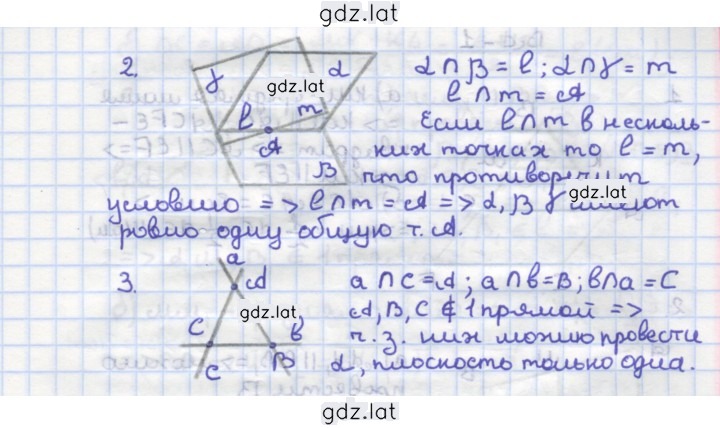 gdz.lat
2.
γ
α
gdz.lat
b
m
A
β
α∩β = b; α∩γ = m
b∩m = A
Если b∩m в несколь-
ких точках то b = m,
что противоречит
условию => b∩m = A => α, β γ имеют
gdz.lat
ровно одну общую т. A.
3.
a
A
gdz.lat
C
b
c
B
a∩c = A; a∩b = B; b∩a = C
A, B, C ∉ 1 прямой =>
ч.з. них можно провести
α, плоскость только одна.
gdz.lat